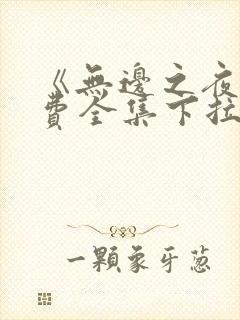 《無邊之夜
費全集下拉
一顆象牙蔥